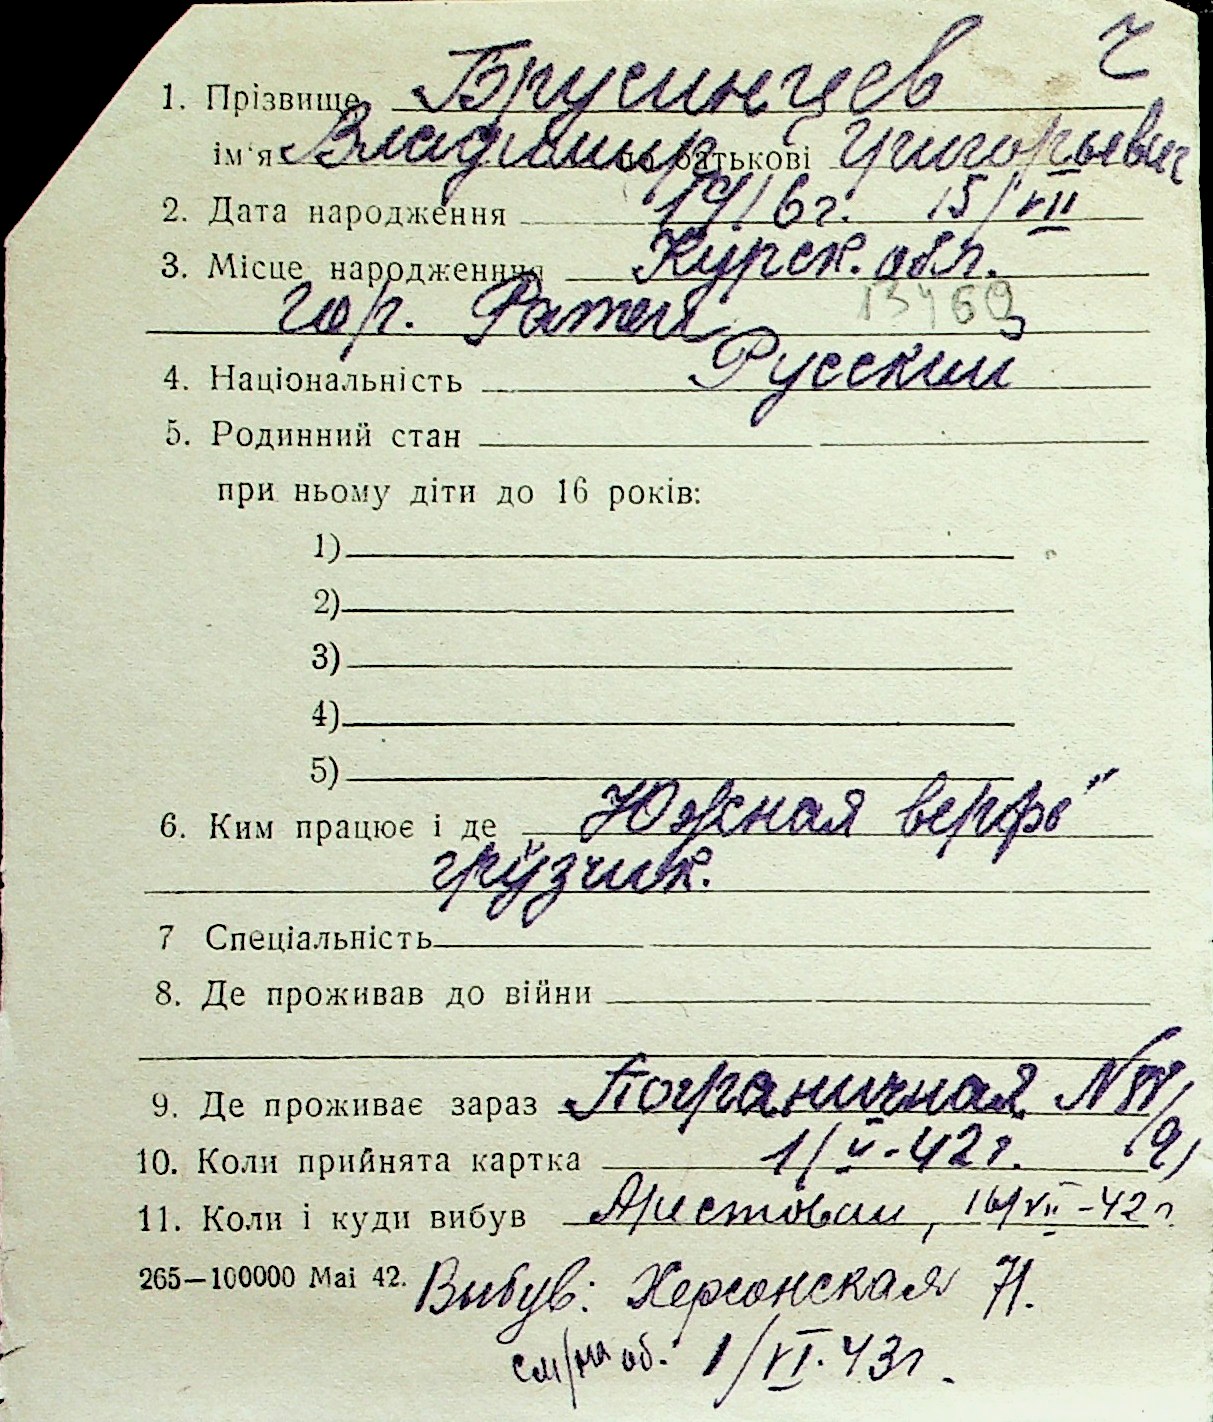 Ч
1. Прізвище Брусинцев
ім'я Владимир по батькові Григорьевич
2. Дата народження 1916 г. 15/VII
3. Місце народження Курск. обл.
гор. 13469
4. Національність Русский
5. Родинний стан
при ньому діти до 16 років:
1)
2)
3)
4)
5)
6. Ким працює і де „Южная верфь"
грузчик.
7 Спеціальність
8. Де проживав до війни
9. Де проживає зараз Пограничная №
10. Коли прийнята картка 1/V-42 г.
11. Коли і куди вибув Арестован, 16/VII-42 г.
265—100000 Mai 42. Выбув: Херсонская 71.
об. 1/VI.43 г.